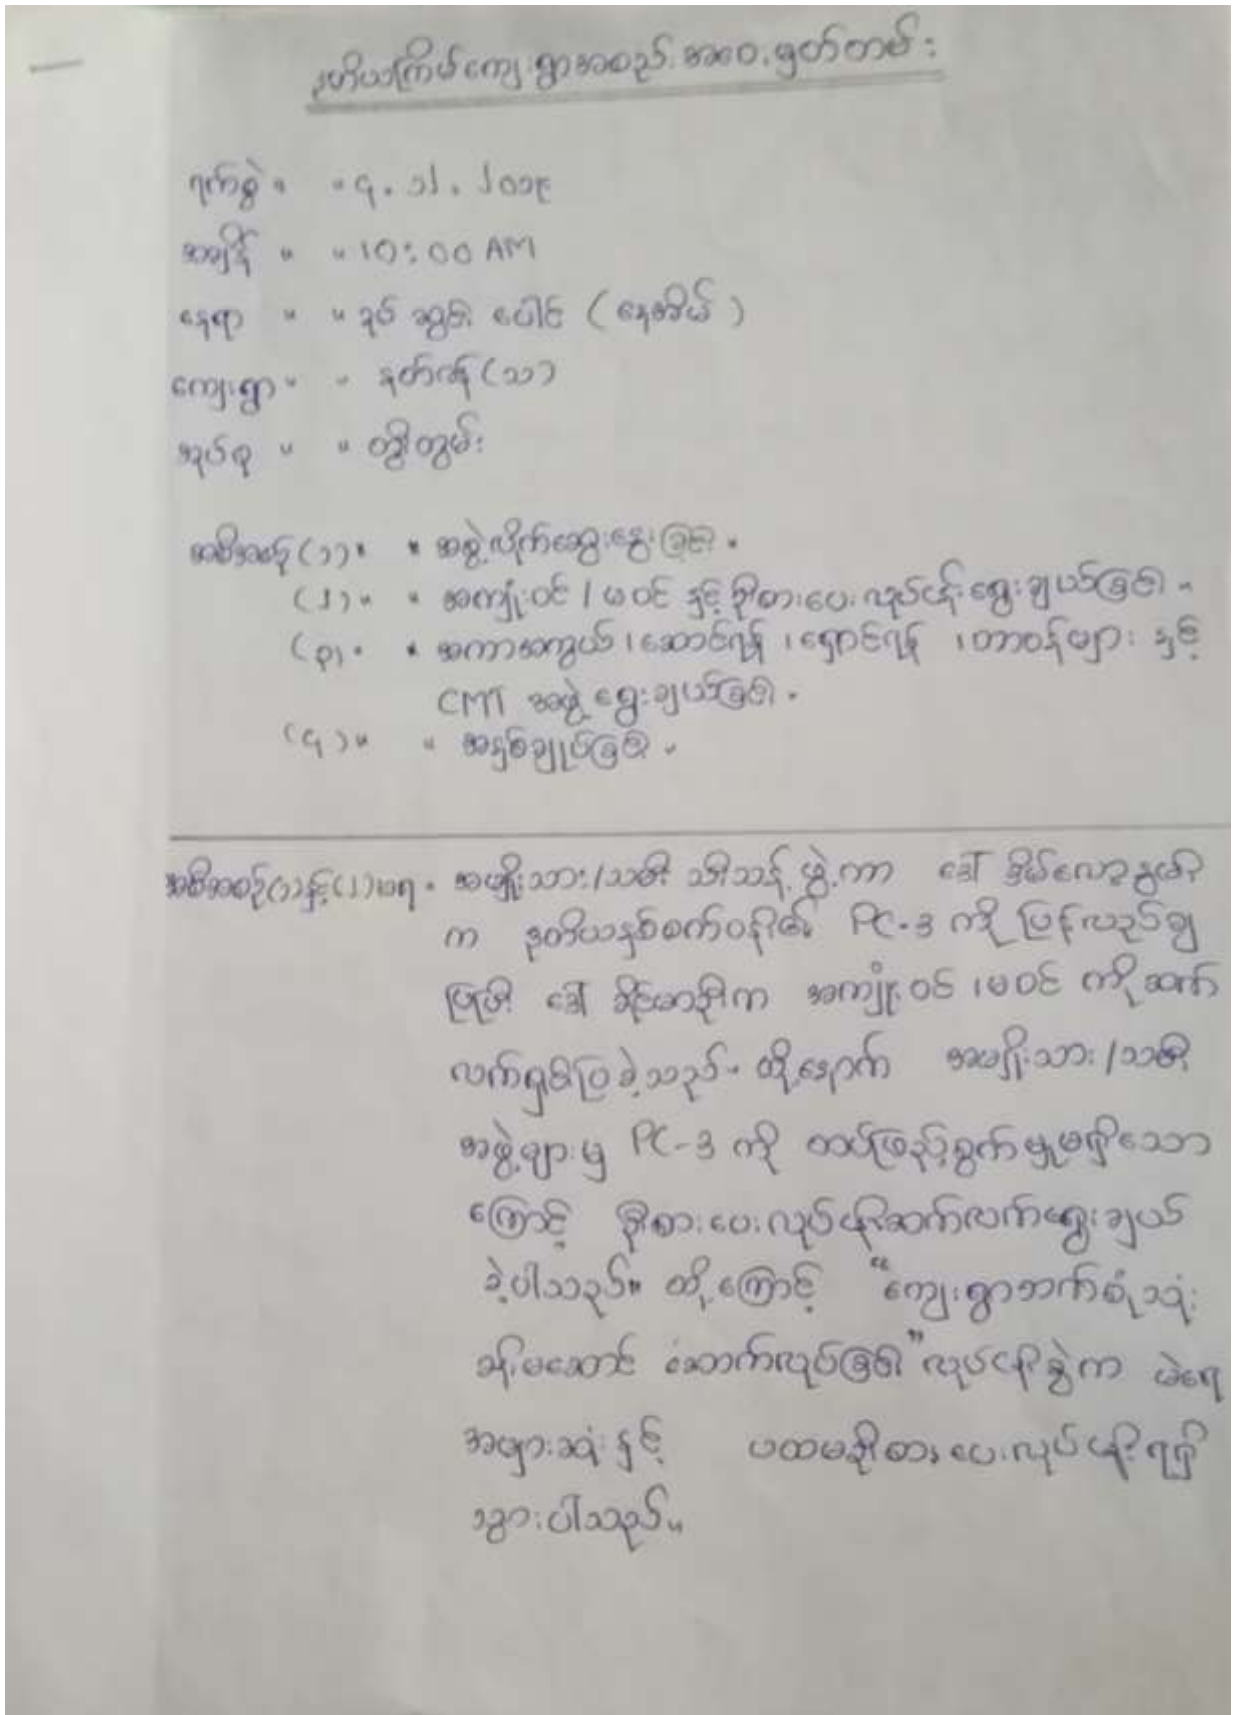 ဒုတိယကြိမ်ကျေးရွာအစည်းအဝေးမှတ်တမ်း
ရက်စွဲ ။ ။ ၄.၁၂.၂၀၁၉
အချိန် ။ ။ 10:00 AM
နေရာ ။ ။ ခုပ် ဆွန်း ပေါင် (နေအိမ်)
ကျေးရွာ ။ ။ နတ်ဇန် (သာ)
အုပ်စု ။ ။ တွီးတွမ်း
အစီအစဉ် (၁) ။ ။ အဖွဲ့လိုက်ဆွေးနွေးခြင်း ။
(၂) ။ ။ အကျုံးဝင် / မဝင် နှင့် ဦးစားပေးလုပ်ငန်းရွေးချယ်ခြင်း ။
(၃) ။ ။ အကာအကွယ် ၊ ဆောင်ရန် ၊ ရှောင်ရန် ၊ တာဝန်များ နှင့်
CMT အဖွဲ့ ရွေးချယ်ခြင်း ။
(၄) ။ ။ အနှစ်ချုပ်ခြင်း ။
အစီအစဉ်(၁)နှင့်(၂)မရ ။ အမျိုးသား/သမီး သီးသန့် ဖွဲ့ကာ ဒေါ်
က ဒုတိယနှစ်စက်ဝန်း၏ PC-3 ကို ပြန်လည်ချ
ပြပြီး ဒေါ် အကျုံးဝင် ၊ မဝင် ကို ဆက်
လက်ရှင်းပြခဲ့သည် ။ ထို့နောက် အမျိုးသား/သမီး
အဖွဲ့များမှ PC-3 ကို ထပ်ဖြည့်စွက်မှုမရှိသော
ကြောင့် ဦးစားပေးလုပ်ငန်းဆက်လက်ရွေးချယ်
ခဲ့ပါသည်။ ထို့ကြောင့် "ကျေးရွာဘက်စုံသုံး
ခန်းမဆောင် ဆောက်လုပ်ခြင်း" လုပ်ငန်းခွဲက မဲရေ
အများဆုံးနှင့် ပထမဦးစားပေးလုပ်ငန်း ရရှိ
သွားပါသည်။